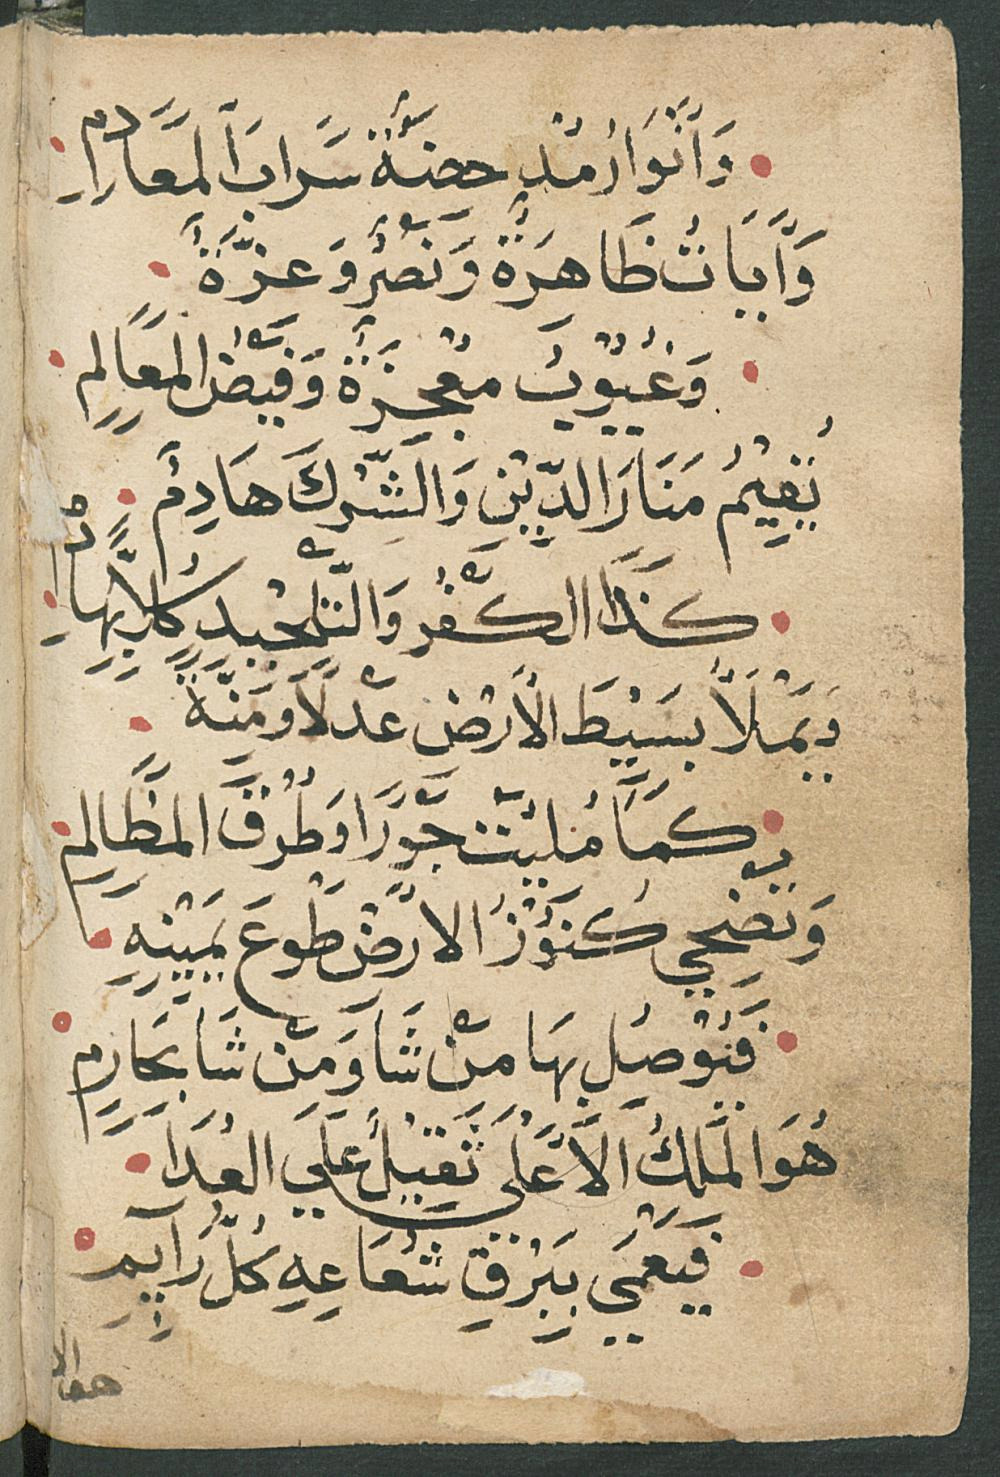 وَأَنْوَارُ مُدْحِضَةٌ سَرَابَ الْمَعَارِمِ
وَآيَاتُ ظَاهِرَةٌ وَنَصْرٌ وَعِزَّةٌ
وَغُيُوبٌ مُعْجِزَةٌ وَفَيْضُ الْمَعَالِمِ
يُقِيْمُ مَنَارَ الدِّيْنِ وَالشِّرْكَ هَادِمٌ
كَذَا الْكُفْرِ وَالتَّلْحِيدِ كُلاًّ بِهَادِمِ
وَيَمْلَأُ بَسَيْطَ الْأَرْضِ عَدْلاً وَمِنَّةً
كَمَا مُلِيَتْ جَوْرًا وَطُرْقَ الْمَظَالِمِ
وَتَضْحِي كُنُوْزُ الْارْضِ طَوْعَ يَمِيْنِهِ
فَتُوْصِلُ بِهَا مَنْ شَا وَمَنْ شَا بِحَارِمِ
هُوَ الْمَلِكُ الْاَعْلَى ثَقِيْلٌ عَلَي الْعُدَا
فَيَعْمَي بِبَرْقِ شُعَاعِهِ كُلُّ رَآيِمِ
هو الا